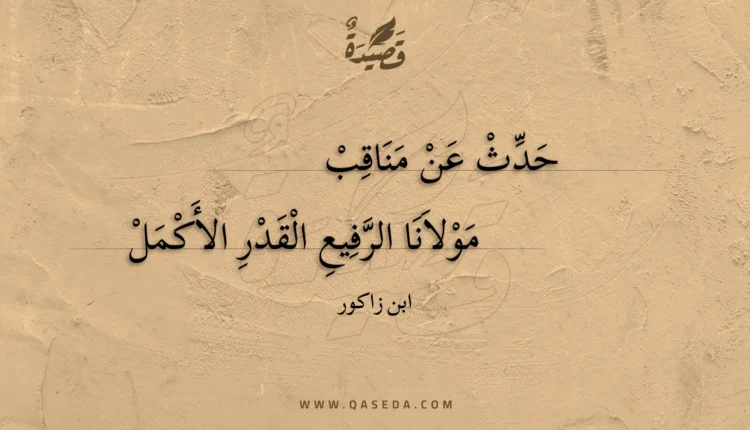 قَصِيدَةٌ
حَدِّثْ عَنْ مَنَاقِبْ
مَوْلاَنَا الرَّفِيعِ الْقَدْرِ الأَكْمَلْ
ابن زاكور
WWW.QASEDA.COM